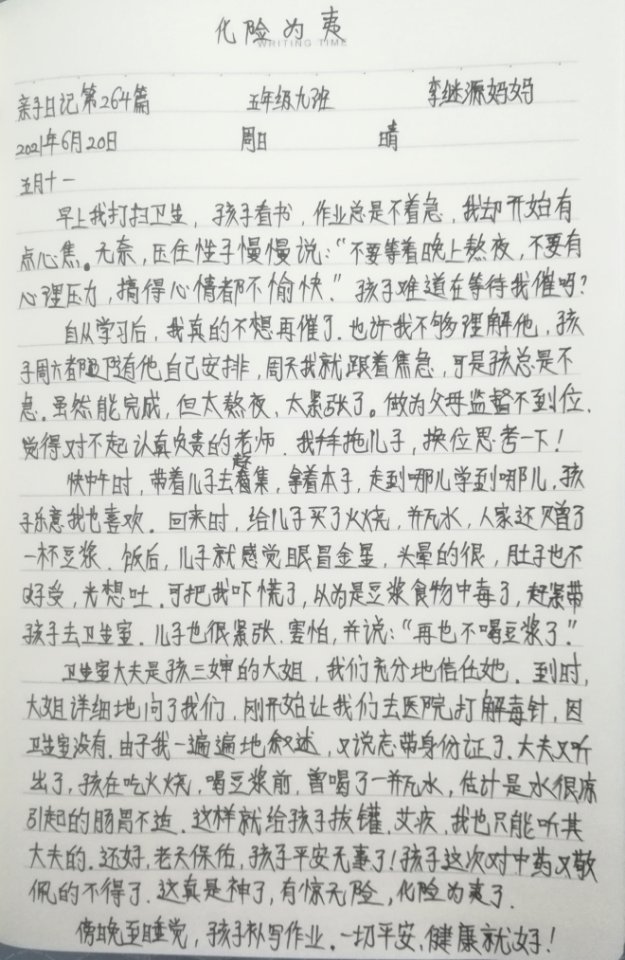 化险为夷
WRITING TIME
亲子日记第264篇 五年级九班 李继源妈妈
2021年6月20日 周日 晴
五月十一
早上我打扫卫生，孩子看书，作业总是不着急，我却开始有
点心焦。无奈，压住性子慢慢说：“不要等着晚上熬夜，不要有
心理压力，搞得心情都不愉快。”孩子难道在等待我催吗？
自从学习后，我真的不想再催了．也许我不够理解他，孩
子周六都没有他自己安排，周天我就跟着焦急，可是孩总是不
急．虽然能完成，但太熬夜、太紧张了。做为父母监督不到位．
觉得对不起认真负责的老师．我拜托儿子，换位思考一下！
快中午时，带着儿子去赶集，拿着本子，走到哪儿学到哪儿，孩
子乐意我也喜欢．回来时，给儿子买了火烧，并瓦水，人家还赠了
一杯豆浆．饭后，儿子就感觉眼冒金星，头晕的很，肚子也不
好受，光想吐．可把我吓慌了，以为是豆浆食物中毒了，赶紧带
孩子去卫生室．儿子也很紧张．害怕，并说：“再也不喝豆浆了．”
卫生室大夫是孩三婶的大姐，我们充分地信任她．到时，
大姐详细地问了我们，刚开始让我们去医院打解毒针，因
卫生室没有．由于我一遍遍地叙述，又说忘带身份证了．大夫又听
出了，孩在吃火烧，喝豆浆前，曾喝了一并瓦水，估计是水很凉
引起的肠胃不适．这样就给孩子拔罐．艾灸，我也只能听其
大夫的．还好，老天保佑，孩子平安无事了！孩子这次对中药又敬
佩的不得了．这真是神了，有惊无险，化险为夷了．
傍晚至睡觉，孩子补写作业．一切平安、健康就好！